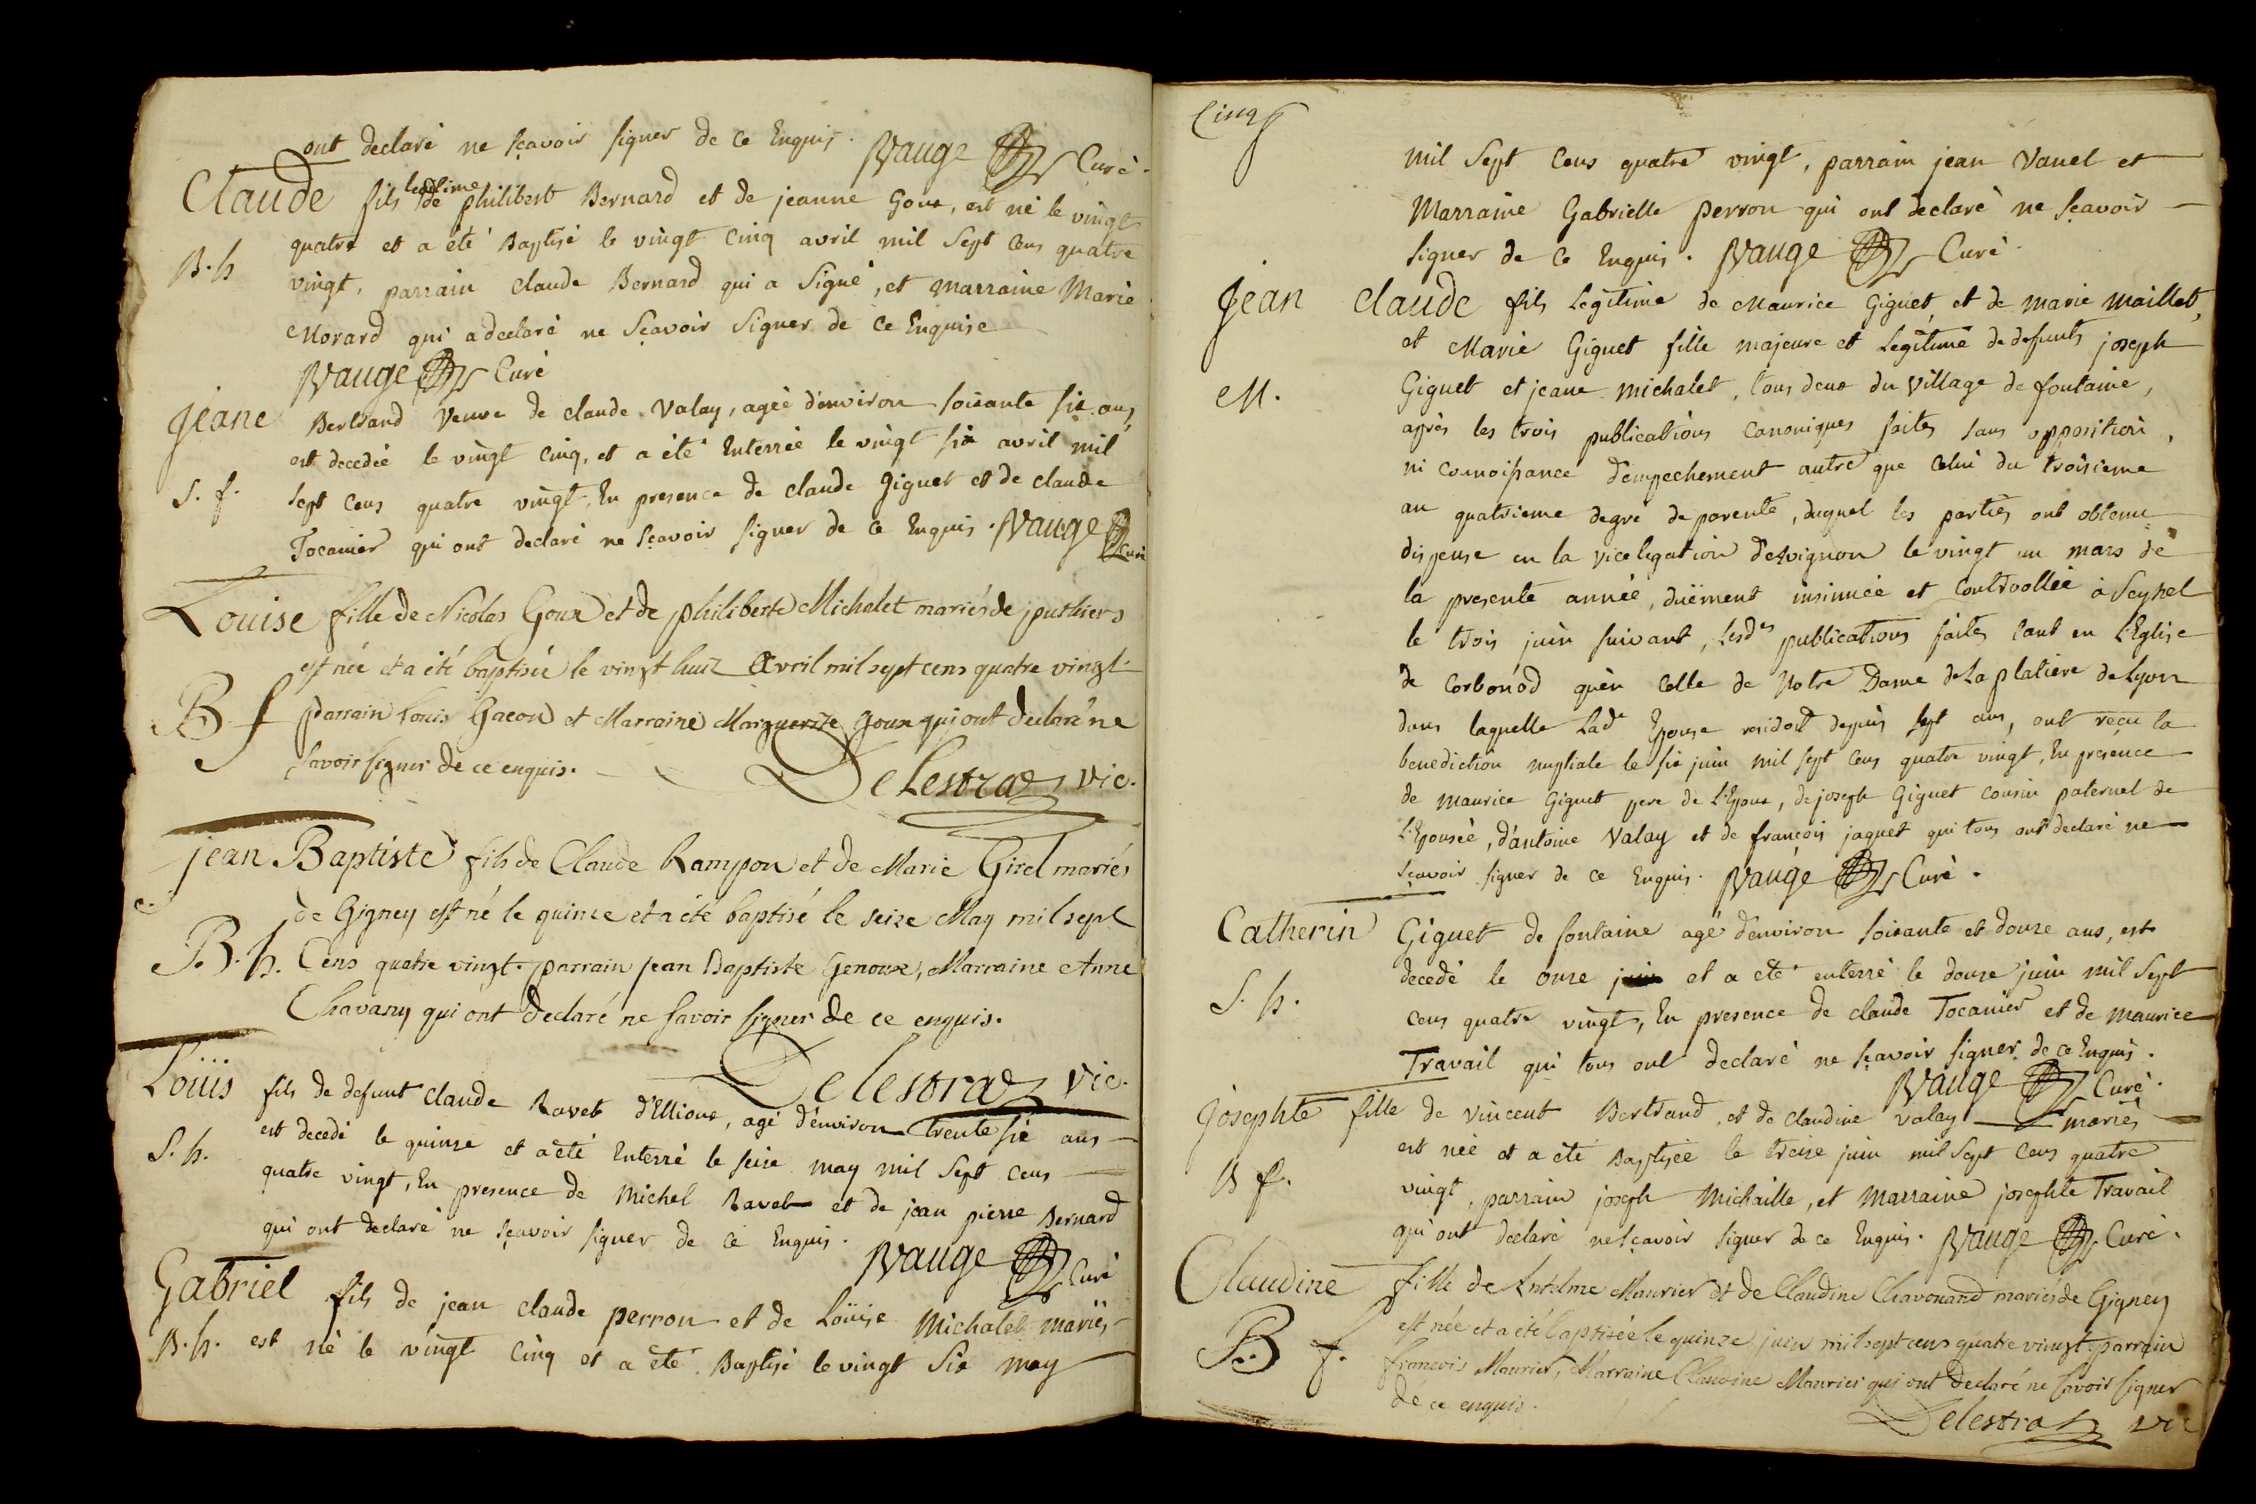 ont declaré ne sçavoir signer de ce Enquis. Vauge Curé.
Claude fils legitime de philibert Bernard et de jeanne Goux, est né le vingt
B. h quatre et a été Baptisé le vingt cinq avril mil Sept Cens quatre
vingt, parrain Claude Bernard qui a Signé, et marraine Marie
Morard qui a declaré ne Sçavoir Signer de Ce Enquise
Vauge Curé
Jeane Bertrand Veuve de claude Valay, agée d'environ soixante six ans,
est decedée le vingt cinq, et a été Enterrée le vingt six avril mil
S. f. sept cens quatre vingt, En presence de claude Giguet et de claude
Tocanier qui ont declaré ne sçavoir signer de Ce Enquis. Vauge Curé
Louise fille de Nicolas Goux et de philiberte Michalet mariés de puthiers
est née et a été baptisée le vingt huit Avril mil sept cens quatre vingt
B f parrain Louis Gacon et Marraine Marguerite Goux qui ont declaré ne
savoir signer de ce enquis. Delestraz vic.
jean Baptiste fils de Claude Rampon et de Marie Girel mariés
de Gigney est né le quinze et a été baptisé le seize May mil sept
B. h. Cens quatre vingt. parrain jean Baptiste Genoux, Marraine Anne
Chavany qui ont declaré ne savoir signer de ce enquis.
Delestraz vic.
Loüis fils de defunt Claude Ravet d'Ellioux, agé d'environ trente six ans
est decedé le quinze et a été Enterré le seize may mil Sept cens
S. h. quatre vingt, En presence de Michel Ravet et de jean pierre Bernard
qui ont declaré ne sçavoir signer de Ce Enquis. Vauge Curé
Gabriel fils de jean claude perron et de Loüise Michalet mariés
B. h. est né le vingt cinq et a été Baptisé le vingt Six may
Cinq
mil Sept Cens quatre vingt, parrain jean Vanel et
Marraine Gabrielle perron qui ont declaré ne sçavoir
signer de Ce Enquis. Vauge Curé.
Jean Claude fils Legitime de Maurice Giguet, et de marie Maillet,
et Marie Giguet fille majeure et Legitime de defunts joseph
M. Giguet et jeane Michalet, tous deux du Village de fontaine,
après les trois publications Canoniques faites sans opposition,
ni connoissance d'empechement autre que celui du troisieme
au quatrieme degré de parenté, duquel les parties ont obtenu
dispense en la vice legation d'Avignon le vingt un mars de
la presente année, duëment insinuée et Controollée à Seyssel
le trois juin suivant, lesdes publications faites tant en L'Eglise
de Corbonod qu'en Celle de Notre Dame de La platiere de Lyon
dans laquelle Lade Epouse residoit depuis sept ans, ont reçu la
benediction nuptiale le six juin mil sept Cens quatre vingt, En presence
de Maurice Giguet pere de L'Epoux, de joseph Giguet cousin paternel de
L'Epousée, d'antoine Valay et de françois jaquet qui tous ont declaré ne
sçavoir signer de Ce Enquis. Vauge Curé.
Catherin Giguet de fontaine agé d'environ soixante et douze ans, est
decedé le onze juin et a été enterré le douze juin mil Sept
S. h. cens quatre vingt, En presence de claude Tocanier et de Maurice
Travail qui tous ont declaré ne sçavoir signer de ce Enquis.
Vauge Curé.
josephte fille de Vincent Bertrand, et de claudine Valay mariés
est née et a été Baptisée le treize juin mil Sept Cens quatre
B f. vingt, parrain joseph Michaille, et Marraine josephte Travail
qui ont declaré ne sçavoir signer de ce Enquis. Vauge Curé.
Claudine fille de Antelme Maurier et de Claudine Chavouand mariés de Gigney
est née et a été baptisée le quinze juin mil sept cens quatre vingt parrain
B f. francois Maurier, Marraine Claudine Maurier qui ont declaré ne savoir signer
de ce enquis. Delestraz vic